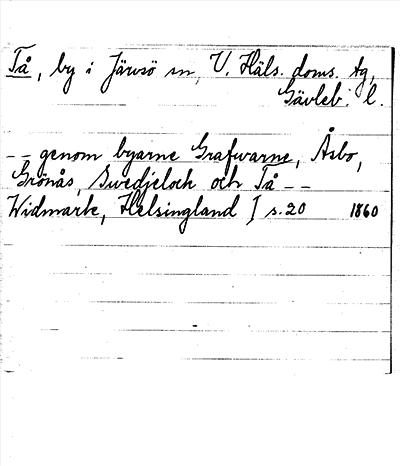 Tå, by i Järvsö sn, V. Häls. doms. tg,
Gävleb. l.
-- genom byarne Grafvarne, Åsbo,
Grönås, Swedjeloch och Tå --
Widmark, Helsingland I s. 20 1860